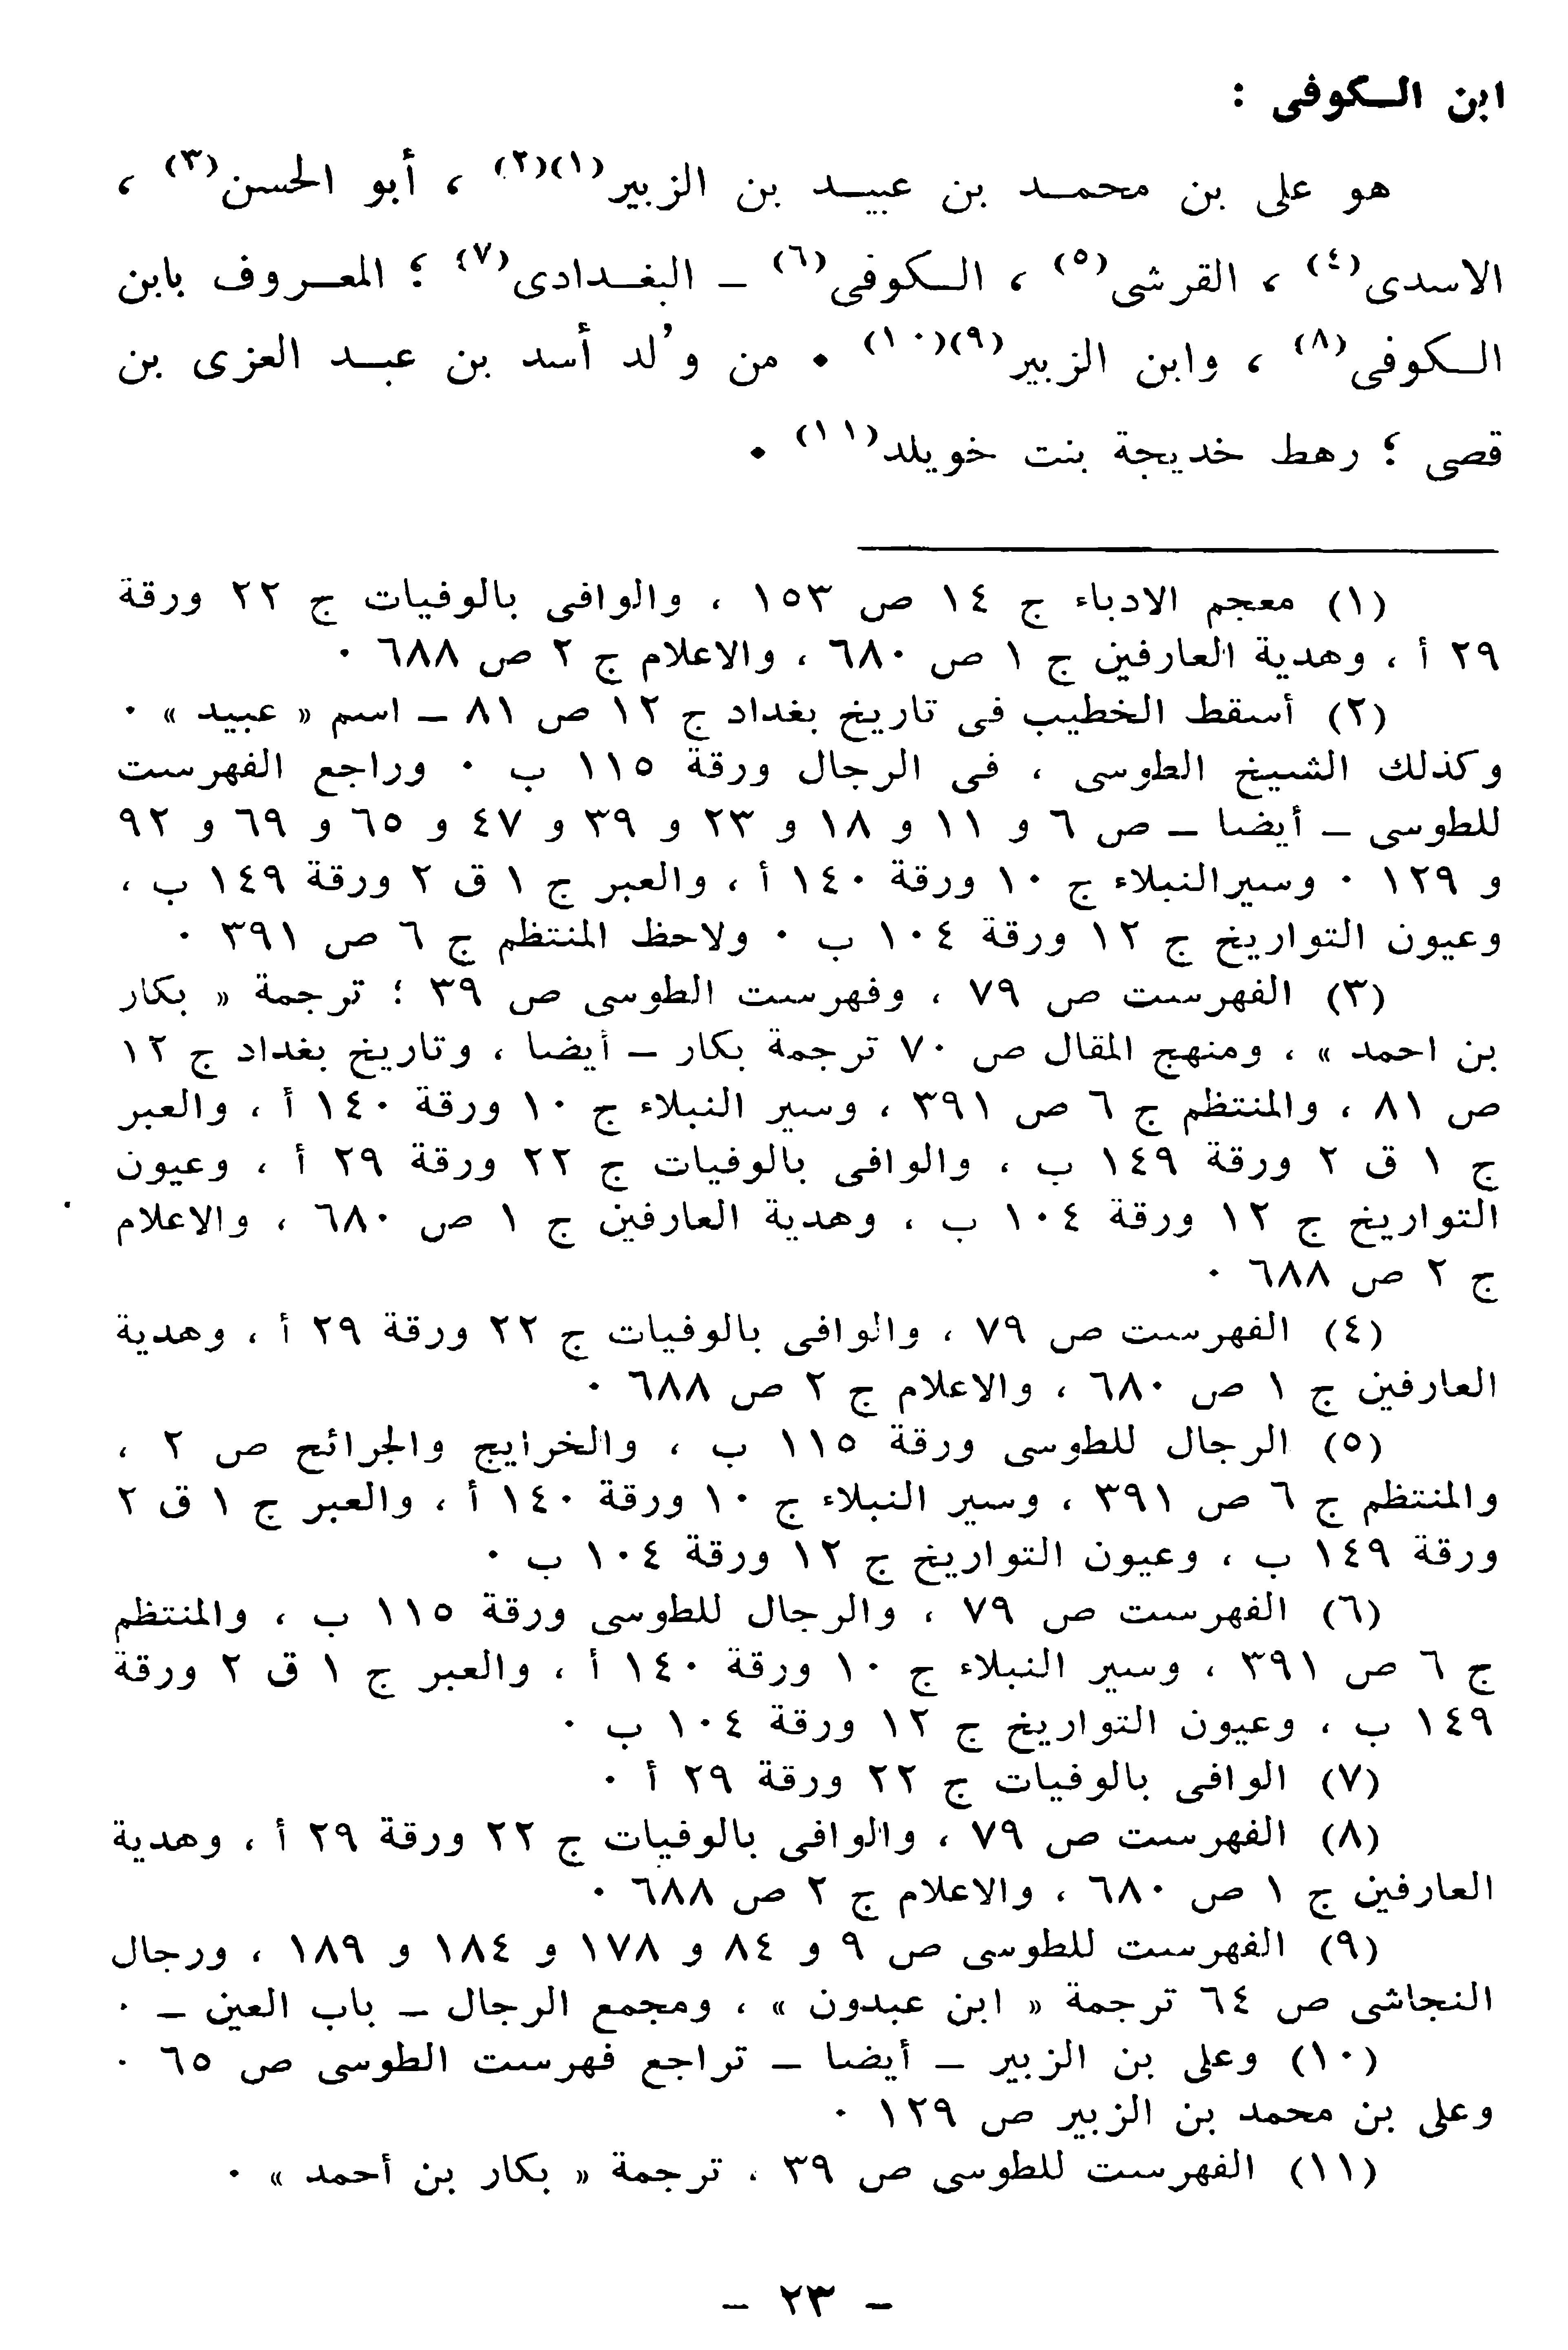 ابن الكوفى :
هو على بن محمد بن عبيد بن الزبير(١)(٢) ، أبو الحسن(٣) ،
الاسدى(٤) ، القرشى(٥) ، الكوفى(٦) – البغدادى(٧) ؛ المعروف بابن
الكوفى(٨) ، وابن الزبير(٩)(١٠) ٠ من وُلد أسد بن عبد العزى بن
قصى ؛ رهط خديجة بنت خويلد(١١) ٠
(١) معجم الادباء ج ١٤ ص ١٥٣ ، والوافى بالوفيات ج ٢٢ ورقة
٢٩ أ ، وهدية العارفين ج ١ ص ٦٨٠ ، والاعلام ج ٢ ص ٦٨٨ ٠
(٢) أسقط الخطيب فى تاريخ بغداد ج ١٢ ص ٨١ – اسم « عبيد » ٠
وكذلك الشيخ الطوسى ، فى الرجال ورقة ١١٥ ب ٠ وراجع الفهرست
للطوسى – أيضا – ص ٦ و ١١ و ١٨ و ٢٣ و ٣٩ و ٤٧ و ٦٥ و ٦٩ و ٩٢
و ١٢٩ ٠ وسيرالنبلاء ج ١٠ ورقة ١٤٠ أ ، والعبر ج ١ ق ٢ ورقة ١٤٩ ب ،
وعيون التواريخ ج ١٢ ورقة ١٠٤ ب ٠ ولاحظ المنتظم ج ٦ ص ٣٩١ ٠
(٣) الفهرست ص ٧٩ ، وفهرست الطوسى ص ٣٩ ؛ ترجمة « بكار
بن احمد » ، ومنهج المقال ص ٧٠ ترجمة بكار – أيضا ، وتاريخ بغداد ج ١٢
ص ٨١ ، والمنتظم ج ٦ ص ٣٩١ ، وسير النبلاء ج ١٠ ورقة ١٤٠ أ ، والعبر
ج ١ ق ٢ ورقة ١٤٩ ب ، والوافى بالوفيات ج ٢٢ ورقة ٢٩ أ ، وعيون
التواريخ ج ١٢ ورقة ١٠٤ ب ، وهدية العارفين ج ١ ص ٦٨٠ ، والاعلام
ج ٢ ص ٦٨٨ ٠
(٤) الفهرست ص ٧٩ ، والوافى بالوفيات ج ٢٢ ورقة ٢٩ أ ، وهدية
العارفين ج ١ ص ٦٨٠ ، والاعلام ج ٢ ص ٦٨٨ ٠
(٥) الرجال للطوسى ورقة ١١٥ ب ، والخرايج والجرائح ص ٢ ،
والمنتظم ج ٦ ص ٣٩١ ، وسير النبلاء ج ١٠ ورقة ١٤٠ أ ، والعبر ج ١ ق ٢
ورقة ١٤٩ ب ، وعيون التواريخ ج ١٢ ورقة ١٠٤ ب ٠
(٦) الفهرست ص ٧٩ ، والرجال للطوسى ورقة ١١٥ ب ، والمنتظم
ج ٦ ص ٣٩١ ، وسير النبلاء ج ١٠ ورقة ١٤٠ أ ، والعبر ج ١ ق ٢ ورقة
١٤٩ ب ، وعيون التواريخ ج ١٢ ورقة ١٠٤ ب ٠
(٧) الوافى بالوفيات ج ٢٢ ورقة ٢٩ أ ٠
(٨) الفهرست ص ٧٩ ، والوافى بالوفيات ج ٢٢ ورقة ٢٩ أ ، وهدية
العارفين ج ١ ص ٦٨٠ ، والاعلام ج ٢ ص ٦٨٨ ٠
(٩) الفهرست للطوسى ص ٩ و ٨٤ و ١٧٨ و ١٨٤ و ١٨٩ ، ورجال
النجاشى ص ٦٤ ترجمة « ابن عبدون » ، ومجمع الرجال – باب العين – ٠
(١٠) وعلى بن الزبير – أيضا – تراجع فهرست الطوسى ص ٦٥ ٠
وعلى بن محمد بن الزبير ص ١٢٩ ٠
(١١) الفهرست للطوسى ص ٣٩ ، ترجمة « بكار بن أحمد » ٠
– ٢٣ –